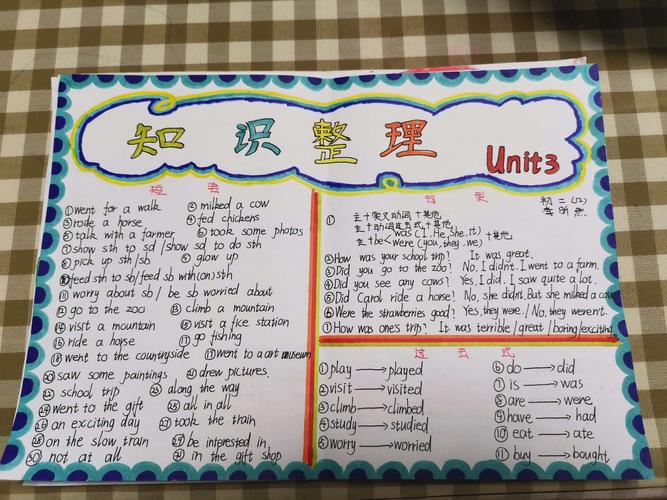 知识整理 Unit3
短语
①went for a walk ②milked a cow
③rode a horse ④fed chickens
⑤talk with a farmer ⑥took some photos
⑦show sth to sd/show sd to do sth
⑧pick up sth/sb ⑨glow up
⑩feed sth to sb/feed sb with(on) sth
⑪worry about sb/be sb worried about
⑫go to the zoo ⑬climb a mountain
⑭visit a mountain ⑮visit a fice station
⑯ride a horse ⑰go fishing
⑱went to the countryside ⑲went to a art museum
⑳saw some paintings ㉑drew pictures
㉒school trip ㉓along the way
㉔went to the gift ㉕all in all
㉖an exciting day ㉗took the train
㉘on the slow train ㉙be interested in
㉚not at all ㉛in the gift shop
句型
初二(12)
① 主+实义动词+其他
主+动词过去式+其他
主+be<was(I.He,She,it)+其他
were(you,they.we)
②How was your school trip? It was great.
③Did you go to the zoo? No.I didn't.I went to a farm.
④Did you see any cows? Yes,I did.I saw quite a lot.
⑤Did Carol ride a horse? No, she didn't.But she milked a cow
⑥Were the strawberries good? Yes,they were./No, they weren't.
⑦How was one's trip? It was terrible/great/boring/exciting
过去式
①play→played ⑥do→did
②visit→visited ⑦is→was
③climb→climbed ⑧are→were
④study→studied ⑨have→had
⑤worry→worried ⑩eat→ate
⑪buy→bought